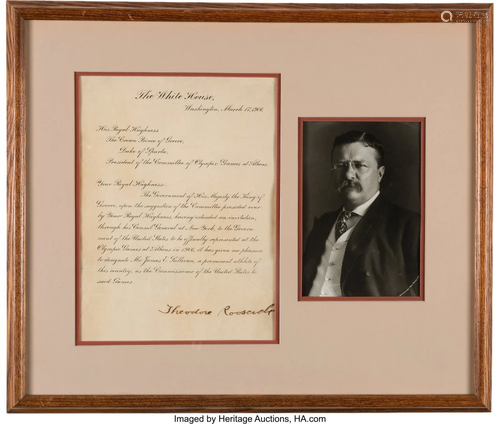 The White House,
Washington, March 17, 1906.
His Royal Highness
The Crown Prince of Greece,
Duke of Sparta,
President of the Committee of Olympic Games at Athens.
Your Royal Highness:
The Government of His Majesty the King of
Greece, upon the suggestion of the Committee presided over
by Your Royal Highness, having extended an invitation,
through his Consul General at New York, to the Govern-
ment of the United States to be officially represented at the
Olympic Games at Athens in 1906, it has given me pleasure
to designate Mr. James E. Sullivan, a prominent athlete of
this country, as the Commissioner of the United States to
said Games.
Theodore Roosevelt
Imaged by Heritage Auctions, HA.com